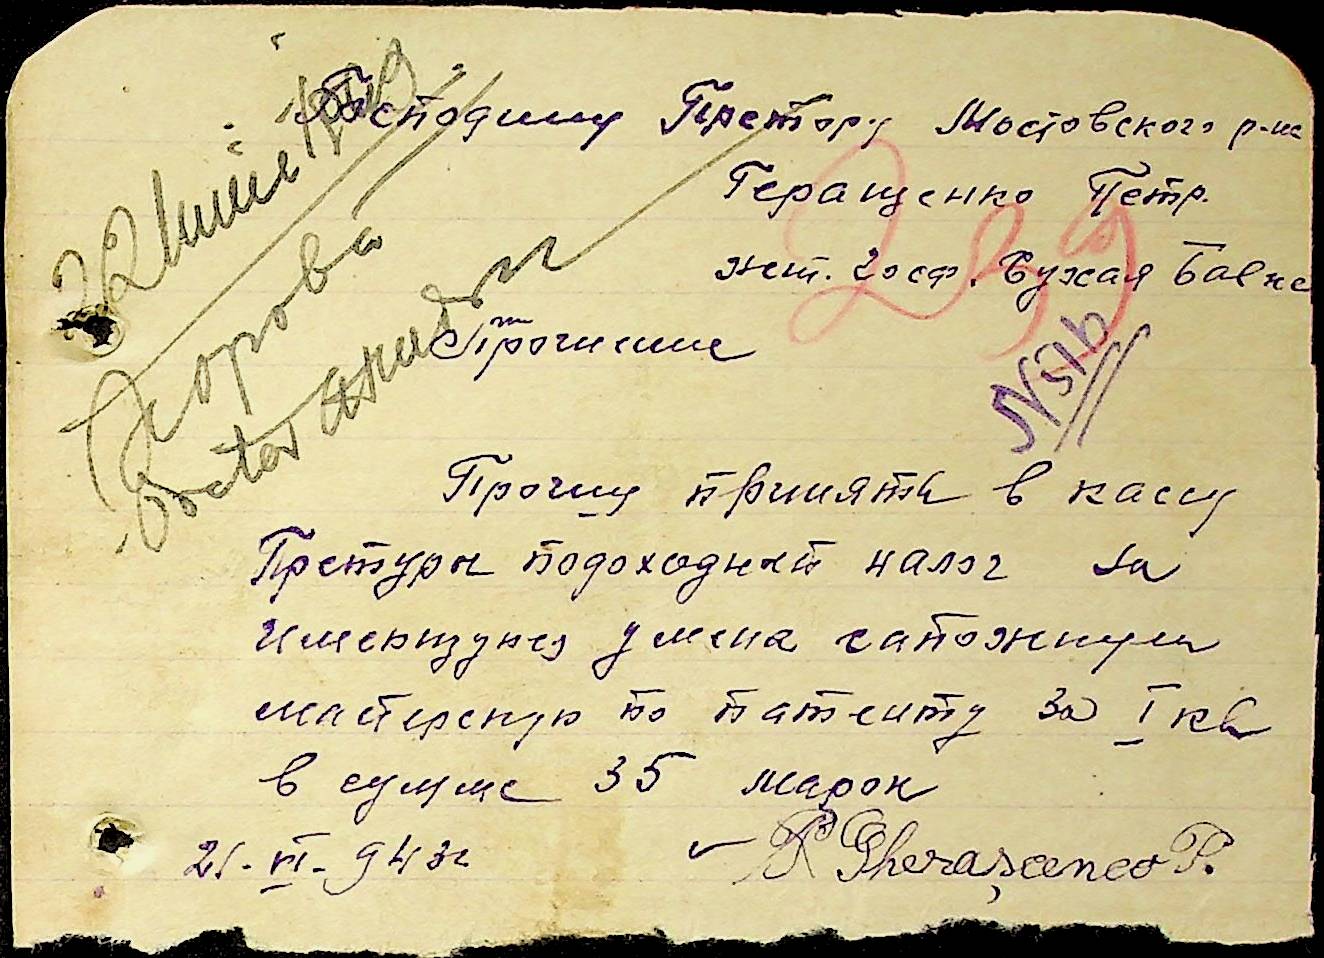 Господину Претору Мостовского р-на
Геращенко Петр.
жит. госф. Сухая Балка
239
Прошение
22 Iunie 1943
Прошу принять в кассу
Претуры подоходный налог за
имеющуюся у меня сапожную
мастерскую по патенту за I кв
в сумме 35 марок
21-VI-943г
P Gherașcenco P.